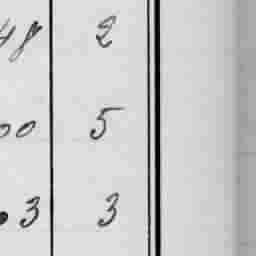 48 2
00 5
3 3